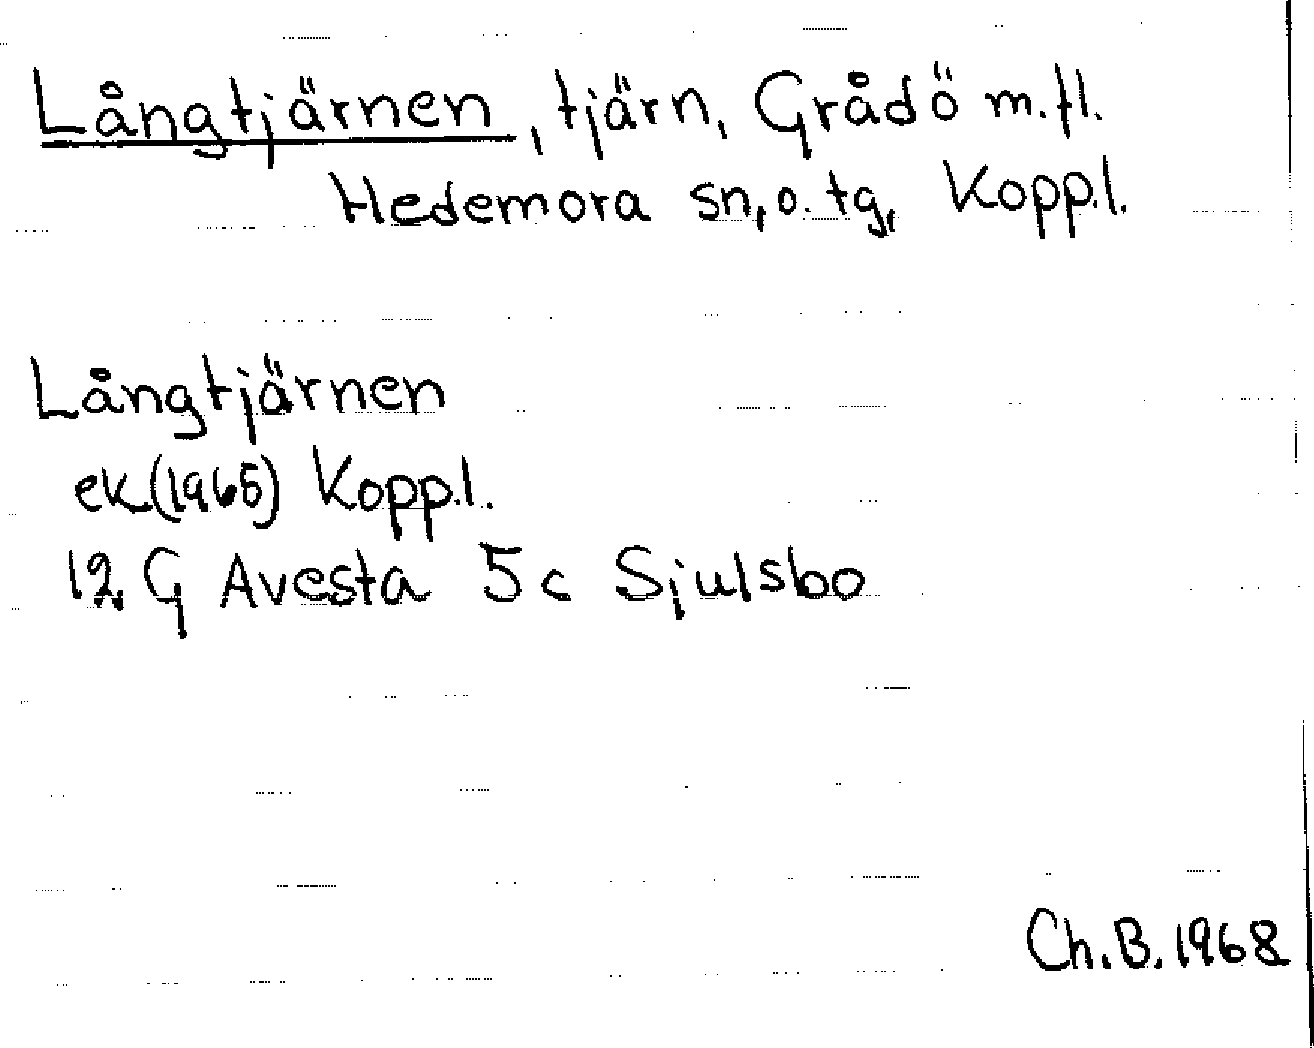 Långtjärnen, tjärn, Grådö m.fl.
Hedemora sn, o. tg, Koppl.
Långtjärnen
ek (1965) Koppl.
12 G Avesta 5 c Sjulsbo
Ch.B. 1968